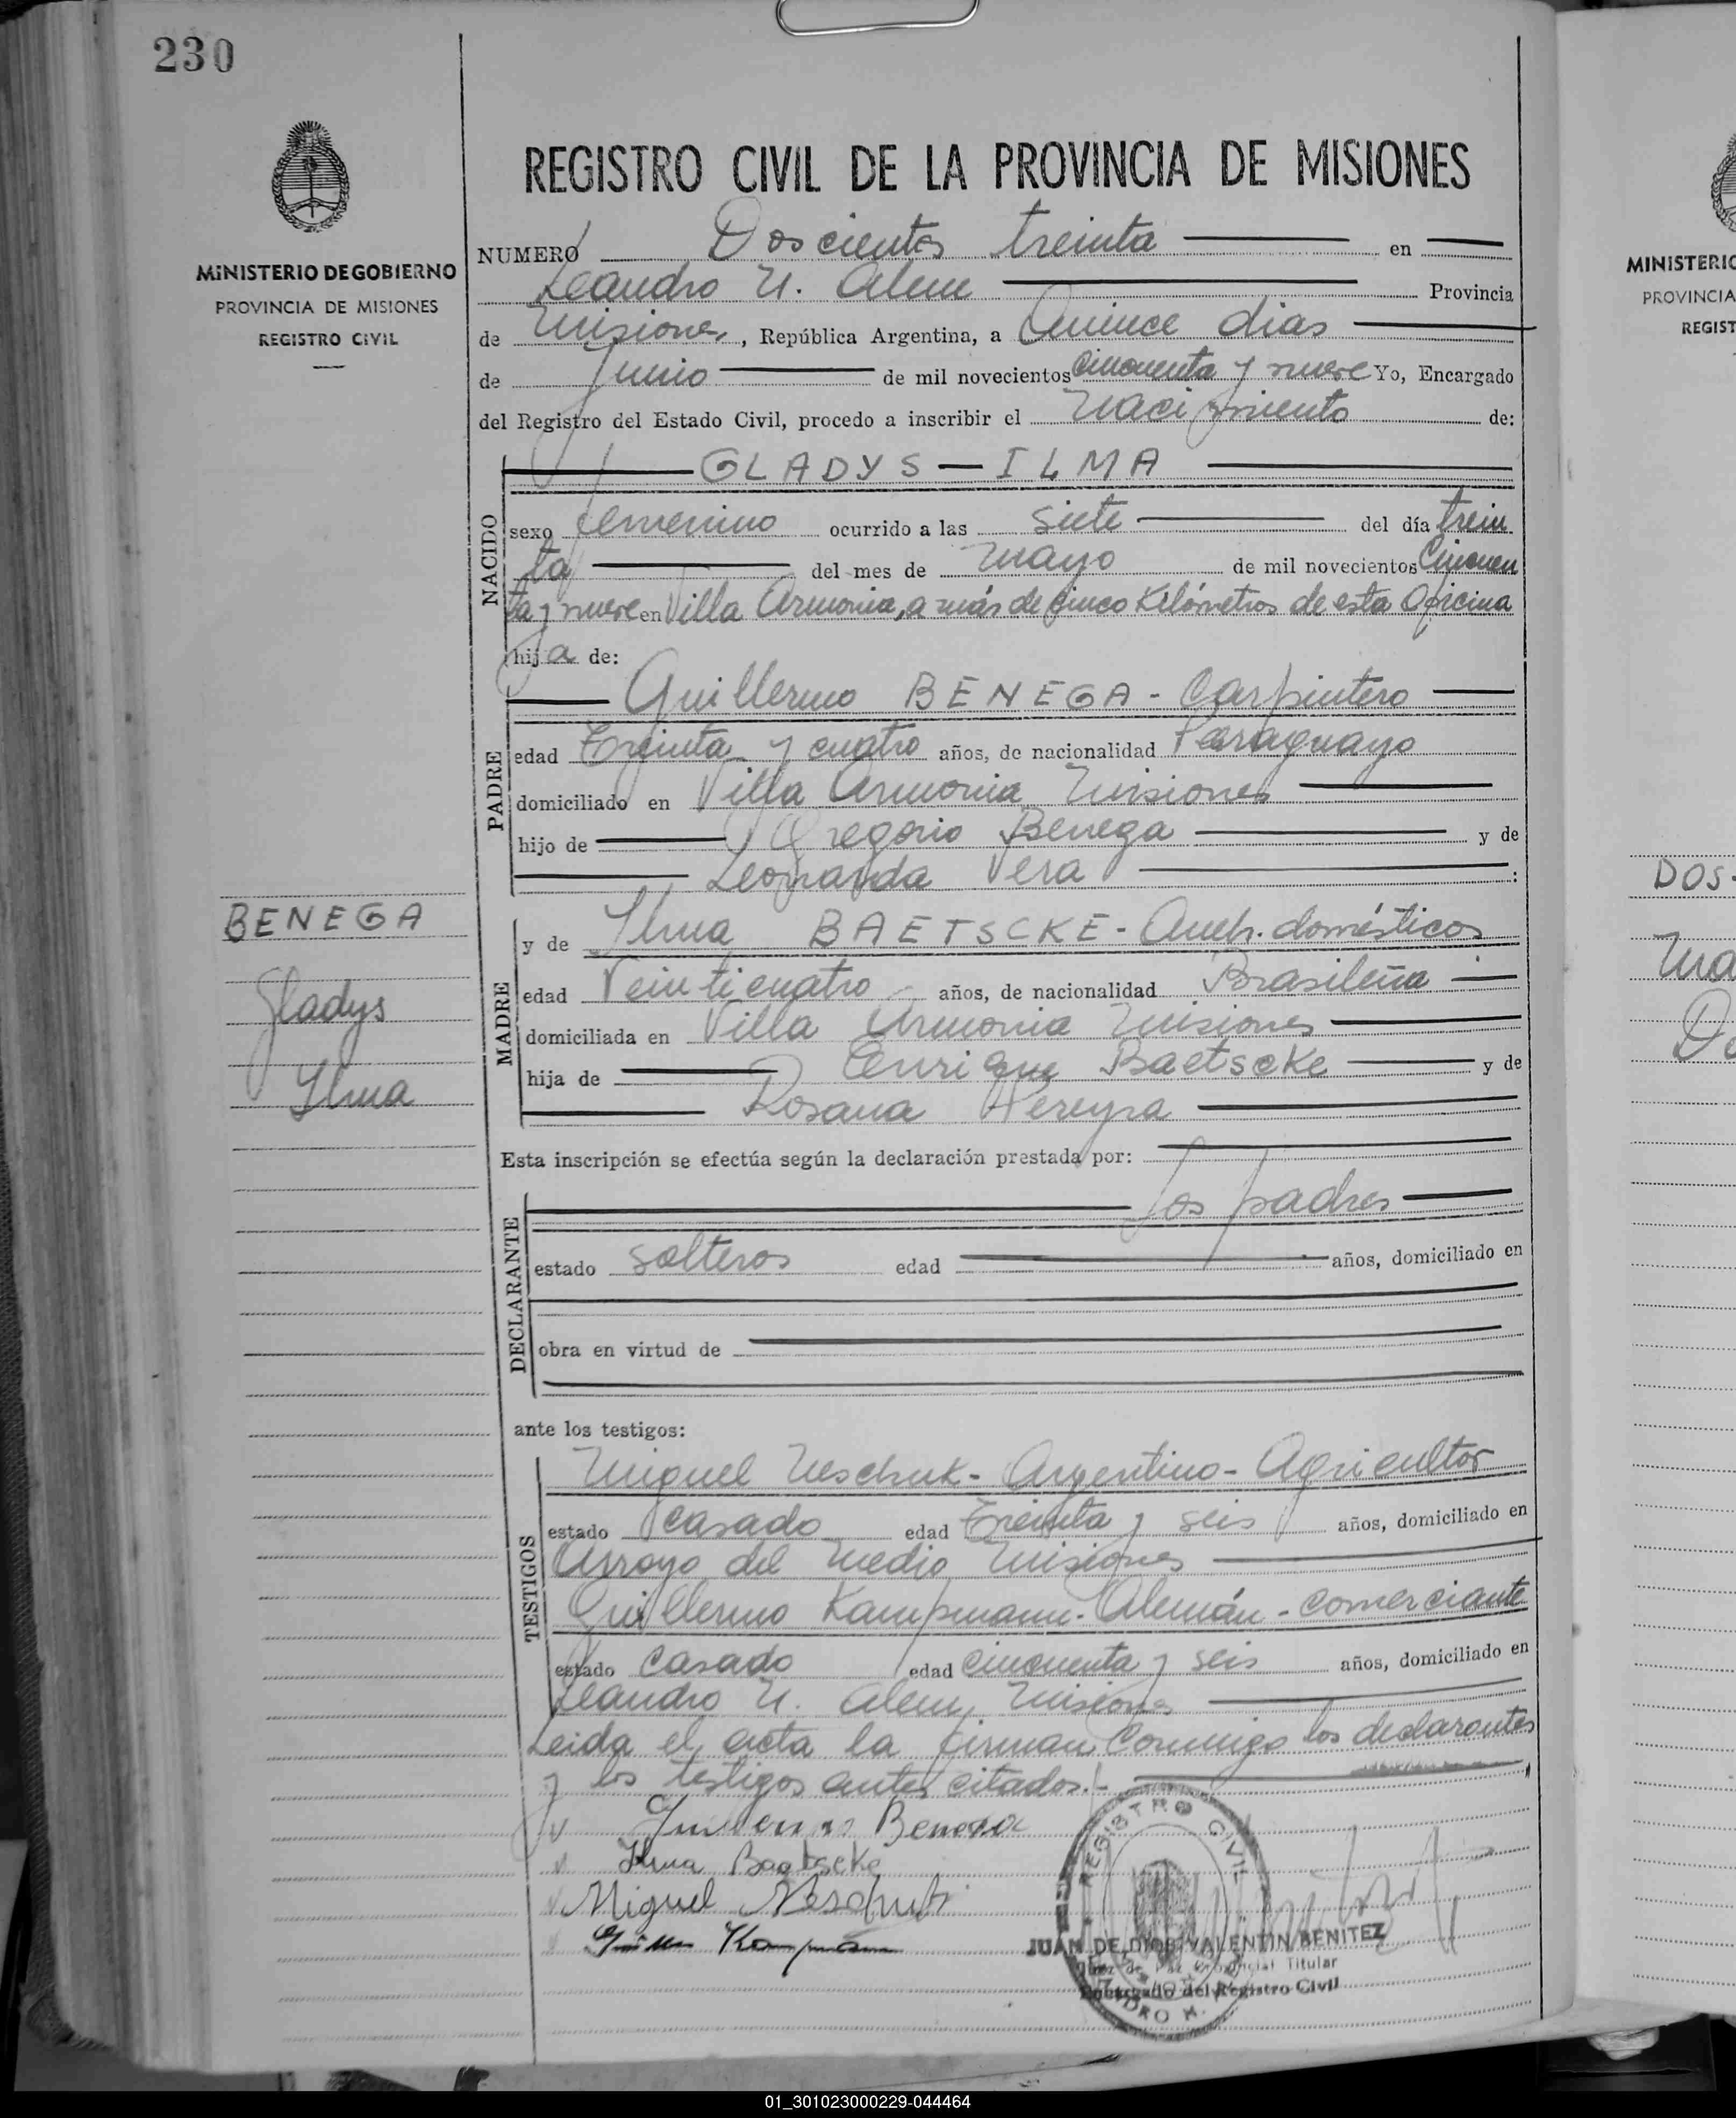 230
MINISTERIO DE GOBIERNO
PROVINCIA DE MISIONES
REGISTRO CIVIL
REGISTRO CIVIL DE LA PROVINCIA DE MISIONES
NUMERO Doscientos treinta en
Leandro N. Alem Provincia
de Misiones, República Argentina, a Quince dias
de Junio de mil novecientos cincuenta y nueve Yo, Encargado
del Registro del Estado Civil, procedo a inscribir el Nacimiento de:
NACIDO
GLADYS — ILMA
sexo femenino ocurrido a las siete del día trein
ta del mes de mayo de mil novecientos Cincuen
ta y nueve en Villa Armonia, a más de cinco Kilómetros de esta Oficina
hija de:
PADRE
Guillermo BENEGA - Carpintero
edad Treinta y cuatro años, de nacionalidad Paraguayo
domiciliado en Villa Armonia Misiones
hijo de Gregorio Benega y de
Leonarda Vera :
BENEGA
Gladys
Ilma
MADRE
y de Ilma BAETSCKE - Queh. domésticos
edad Veinticuatro años, de nacionalidad Brasileña
domiciliada en Villa Armonia Misiones
hija de Enrique Baetscke y de
Rosana Pereyra
Esta inscripción se efectúa según la declaración prestada por:
DECLARANTE
los padres
estado solteros edad años, domiciliado en
obra en virtud de
ante los testigos:
TESTIGOS
Miguel Neschuk - Argentino - Agricultor
estado casado edad Treinta y seis años, domiciliado en
Arroyo del Medio Misiones
Guillermo Kampmann - Alemán - comerciante
estado casado edad cincuenta y seis años, domiciliado en
Leandro N. Alem, Misiones
Leida el acta la firman Conmigo los declarantes
y los testigos antes citados.-
Guillermo Benega
Ilma Baetscke
Miguel Neschuk
Kampmann
REGISTRO CIVIL
JUAN DE DIOS VALENTIN BENITEZ
Juez de Paz Provincial Titular
Encargado del Registro Civil
MINISTERIO
PROVINCIA
REGIST
DOS-
01_301023000229-044464